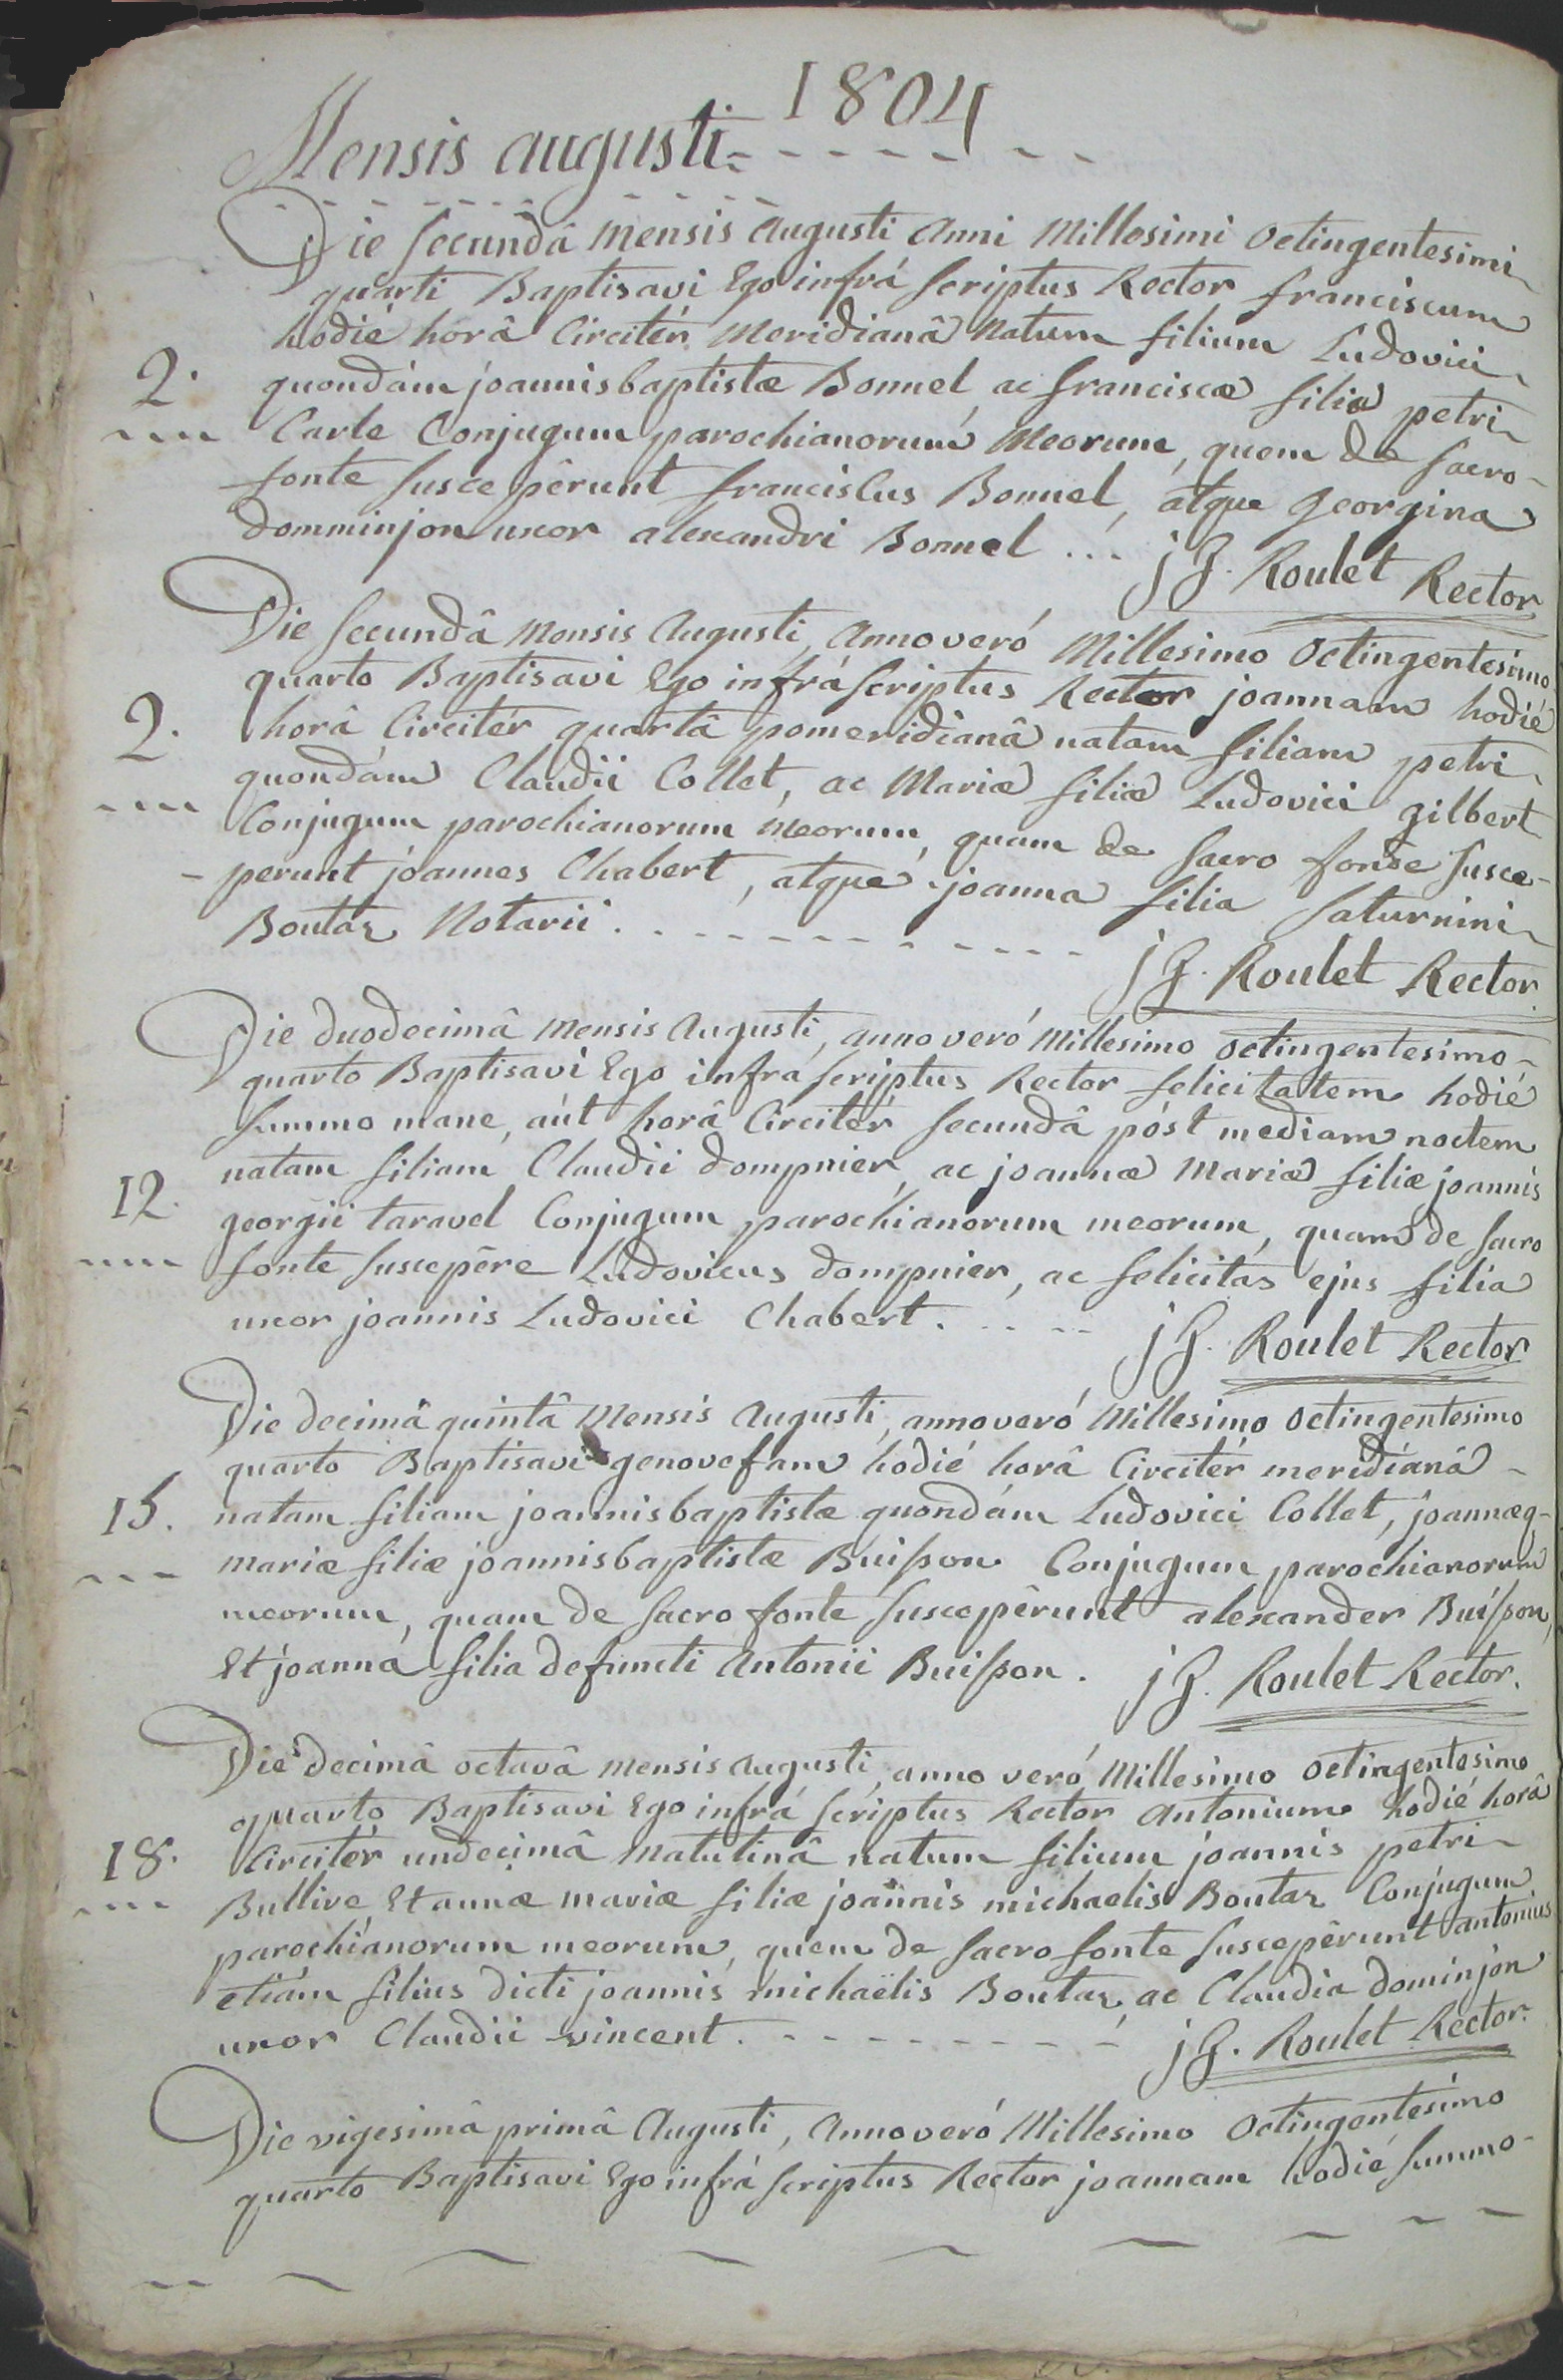 1804
Mensis augusti
Die secundâ mensis augusti anni Millesimi octingentesimi
quarti Baptisavi Ego infrá scriptus Rector franciscum
hodié horâ Circitér Meridianâ Natum filium Ludovici
2. quondám joannisbaptistæ Bonnel ac franciscæ filiæ petri
Carle Conjugum parochianorum Meorum, quem de sacro
fonte suscepêrunt franciscus Bonnel, atque georgina
domminjon uxor alexandri Bonnel ... j J. Roulet Rector
Die secundâ Mensis Augusti, Anno veró Millesimo octingentesimo
quarto Baptisavi Ego infrá scriptus Rector joannam hodié
2. horâ Circitér quartâ pomeridianâ natam filiam petri
quondám Claudii Collet, ac Mariæ filiæ Ludovici gilbert
Conjugum parochianorum Meorum, quam de sacro fonte susce-
-perunt joannes Chabert, atque joanna filia saturnini
Boutaz Notarii. j J. Roulet Rector.
Die duodecimâ Mensis Augusti, anno veró Millesimo octingentesimo-
quarto Baptisavi Ego infrá scriptus Rector felicitatem hodié
summo mane, aút horâ Circitér secundâ póst mediam noctem
12. natam filiam Claudii dompnier, ac joannæ Mariæ filiæ joannis
georgii taravel Conjugum parochianorum meorum, quam de sacro
fonte suscepêre Ludovicus dompnier, ac felicitas ejus filia
uxor joannis Ludovici Chabert. j J. Roulet Rector
Die decimâ quintâ Mensis Augusti, anno veró Millesimo octingentesimo
quarto Baptisavi genovefam hodié horâ Circitér meridianâ -
15. natam filiam joannisbaptistæ quondám Ludovici Collet, joannæq-
mariæ filiæ joannisbaptistæ Buisson Conjugum parochianorum
meorum, quam de sacro fonte suscepêrunt alexander Buisson,
Et joanna filia defuncti Antonii Buisson. j J. Roulet Rector.
Die decimâ octavâ mensis augusti, anno veró Millesimo octingentesimo
quarto Baptisavi Ego infrá scriptus Rector Antonium hodié horâ
18. Circitér undecimâ Matutinâ natum filium joannis petri
Bullive Et annæ mariæ filiæ joannis michaelis Boutaz Conjugum
parochianorum meorum, quem de sacro fonte suscepêrunt antonius
etiám filius dicti joannis michaëlis Boutaz, ac Claudia dominjon
uxor Claudii vincent. j J. Roulet Rector.
Die vigesimâ primâ Augusti, Anno veró Millesimo Octingentesimo
quarto Baptisavi Ego infrá scriptus Rector joannam hodié summo-